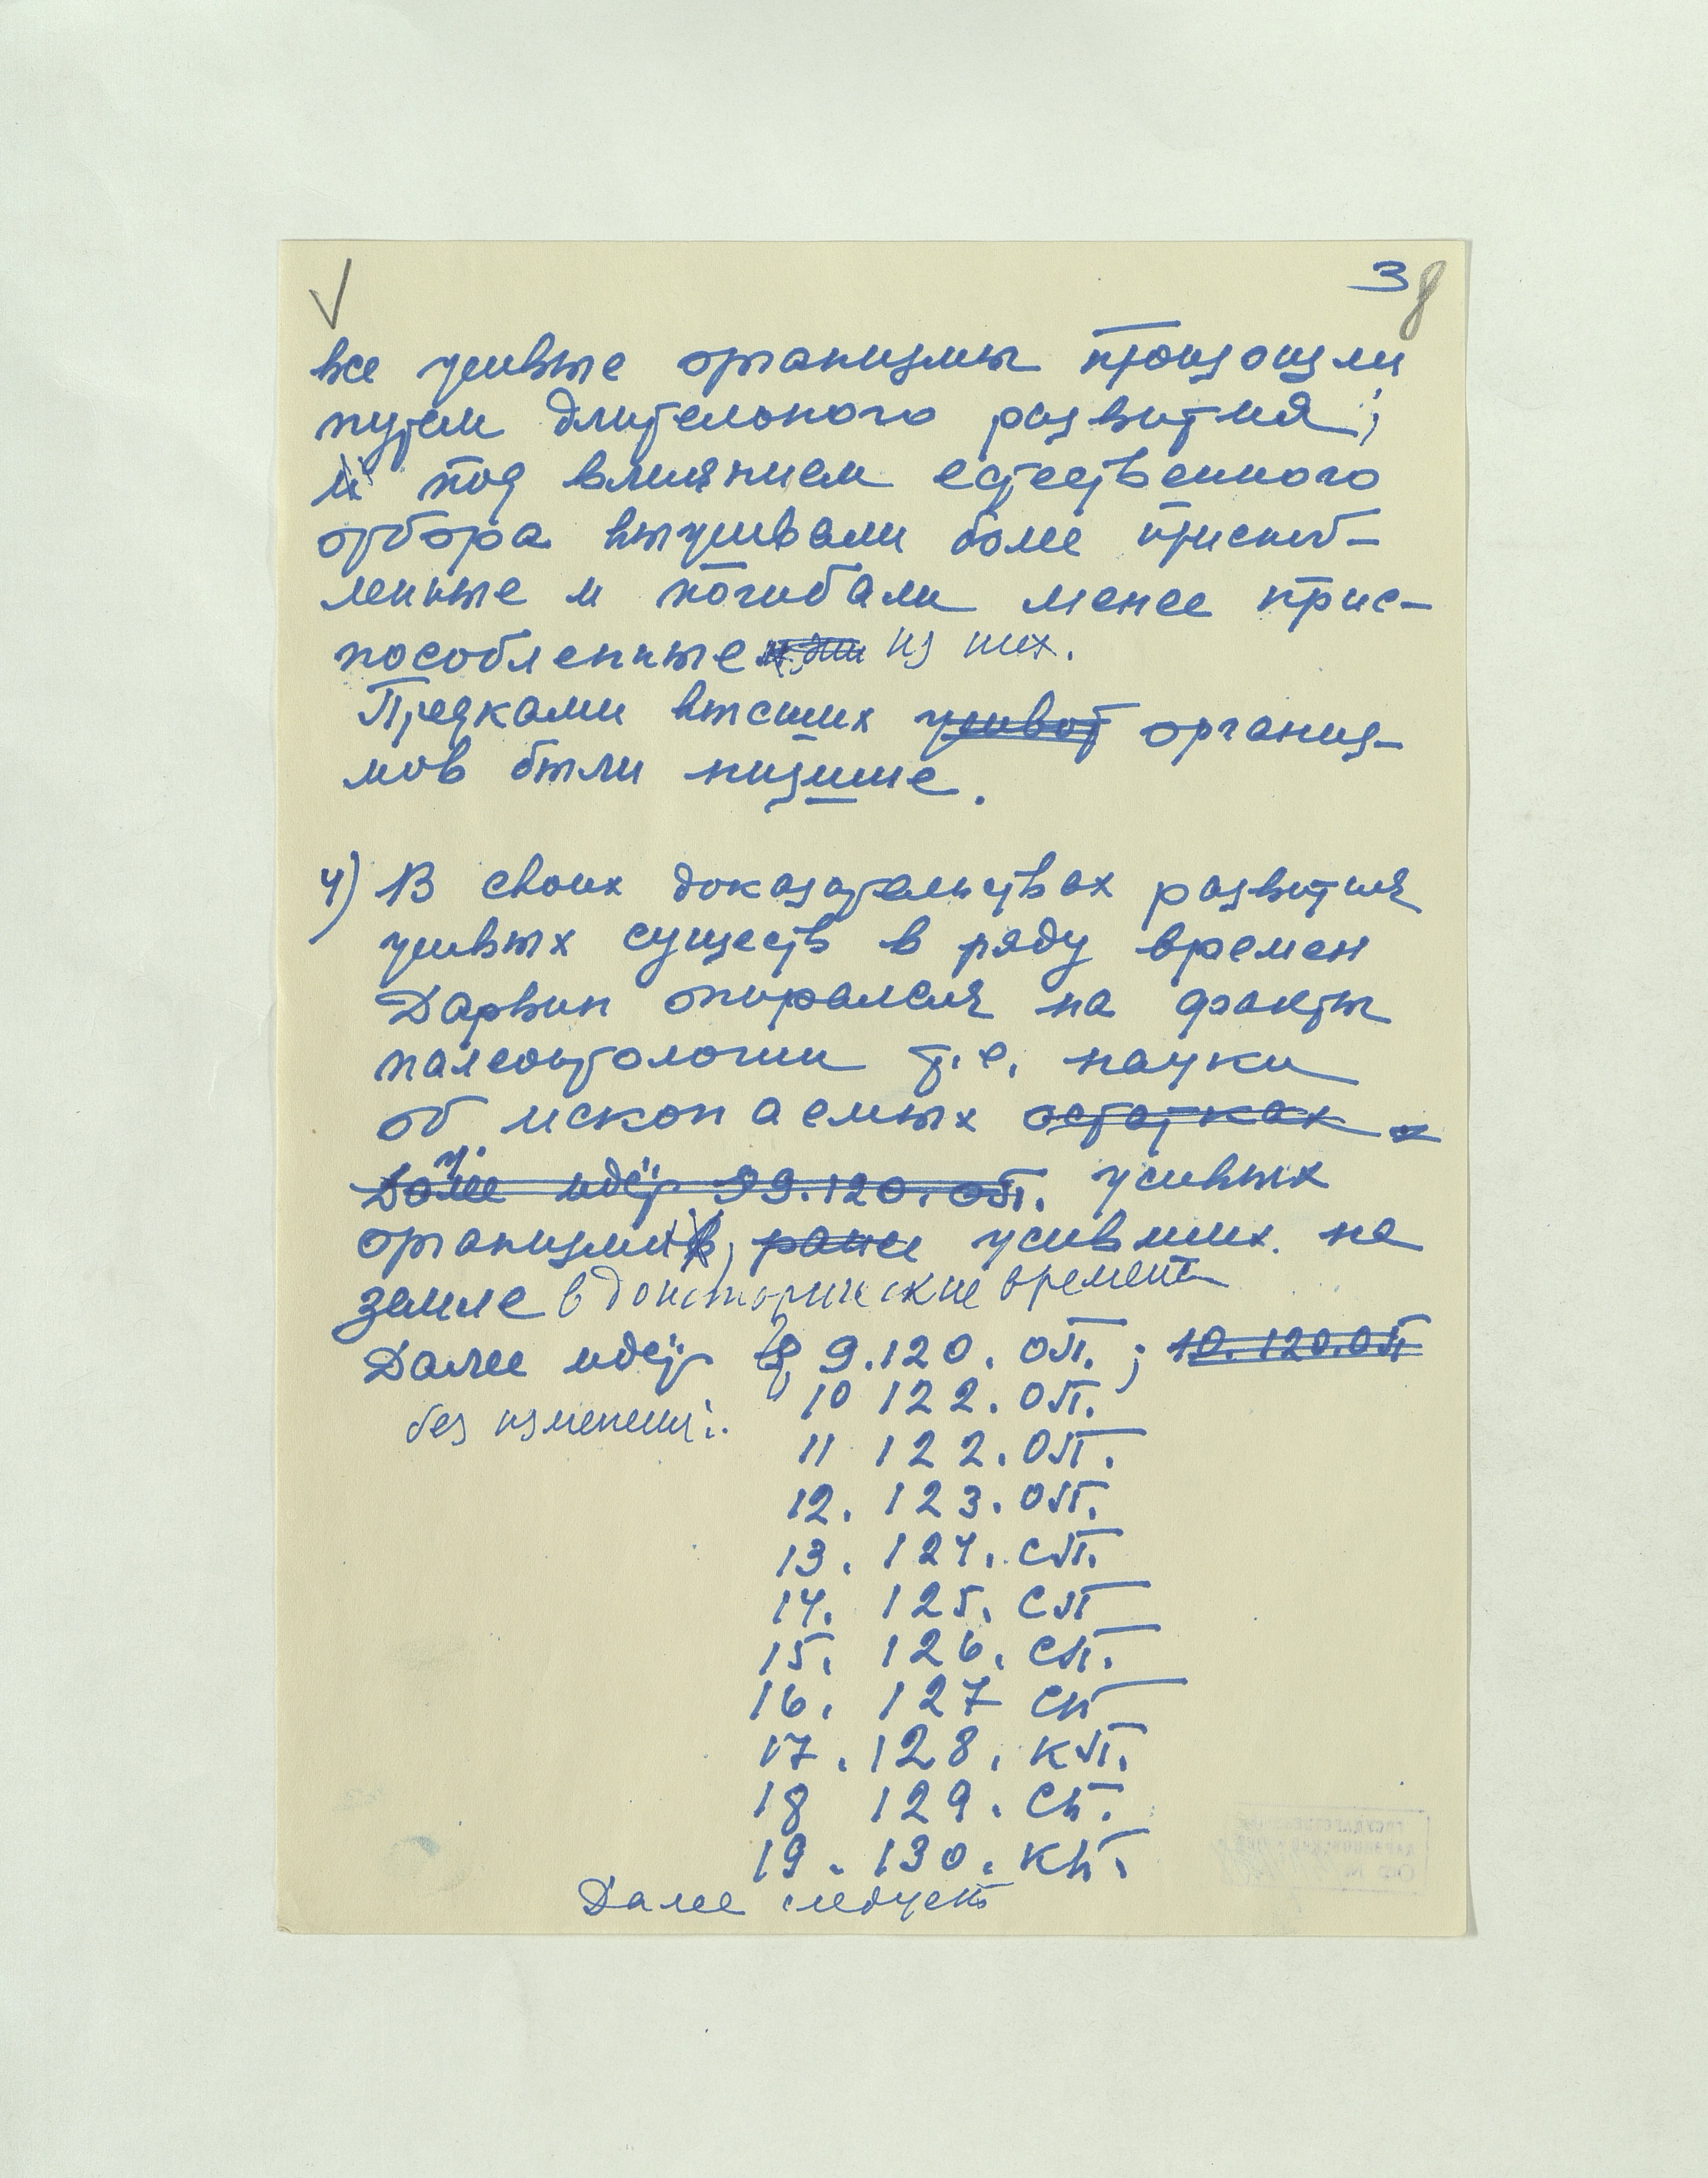 3 8
все живые организмы произошли
путем длительного развития;
и под влиянием естественного
отбора выживали более приспоб-
ленные и погибали менее прис-
пособленные из них.
Предками высших живот организ-
мов были низшие.
4) В своих доказательствах развития
живых существ в ряду времен
Дарвин опирался на факты
палеонтологии т.е. науки
об ископаемых остатках
Далее идёт 99.120.оп. живых
организмов, ранее живших на
земле в доисторические времена
Далее идёт 9.120. оп.; 10.120.оп
без изменений. 10 122. оп.
11 122. оп.
12. 123. оп.
13. 124. сп.
14. 125. сп
15. 126. сп.
16. 127 сп
17. 128. кп.
18 129. сп.
19. 130. кп.
Далее следует